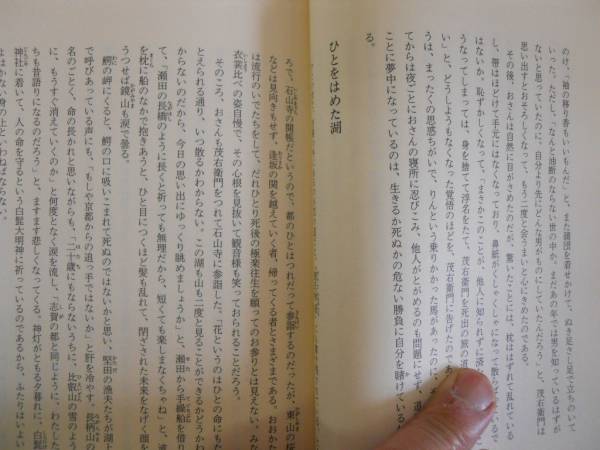 のけ、「袖の移り香もいいもんだ」と、また蒲団を着せかけて、ぬき足さし足で立ちのいて
いった。ただし、「なんと油断のならない世の中か。まだあの年では男を知っているはずが
ないと思っていたのに、自分より先にどんな男がものにしていたんだろう」と、茂右衛門は
思い出すとおそろしくなって、もう二度と会うまいと心にきめたのである。
その後、おさんは自然に目がさめたのだが、驚いたことには、枕ははずれて乱れている
し、帯はほどけて手元にはなくなっており、鼻紙がくしゃくしゃになって散らば
はないか。恥ずかしくなって、「まさかこのことが、他人に知られずに済
うなってしまっては、身を捨てて浮名をたて、茂右衛門を死出の旅の道
い」と、どうしようもなくなった覚悟のほどを、茂右衛門に告げたのであ
うは、まったくの思惑ちがいで、りんという乗りかかった馬があったのに、
てからは夜ごとにおさんの寝所に忍びこみ、他人がとがめるのも問題にせず、道
ことに夢中になっているのは、生きるか死ぬかの危ない勝負に自分を賭けている
る。
ひとをはめた湖
ろで、石山寺の開帳だというので、都のひとはつれだって参詣するのだったが、東山の桜
などは見向きもせず、逢坂の関を越えていく者、帰ってくる者とさまざまである。おおかた
は流行のいでたちをして、だれひとり死後の極楽往生を願ってのお参りとは見えない。みな
衣裳比べの姿自慢で、その心根を見抜いて観音様も笑っておられることだろう。
そのころ、おさんも茂右衛門をつれて石山寺に参詣した。「花というのはひとの命にもた
とえられる通り、いつ散るかわからない。この湖も山も二度と見ることができるかどうかわ
からないのだから、今日の思い出にゆっくり眺めましょうか」と、瀬田から手繰船を借り
て、「瀬田の長橋のように長くと祈っても無理だから、短くても楽しまなくちゃね」と、波
を枕に船のなかで抱きあうと、ひと目につくほど髪も乱れて、閉ざされた未来をなげく顔を
うつせば鏡山も涙で曇る。
鰐の岬にくると、鰐の口に吸いこまれて死ぬのではないかと思い、堅田の漁夫たちが湖上
で呼びあっている声にも、「もしや京都からの追っ手ではないか」と肝を冷やす。長柄山の
名のごとく、命の長かれと思いながらも、「二十歳にもならないうちに、比叡山の雪のよう
に、もうすぐ消えていくのか」と何度となく涙を流し、「志賀の都と同じように、わたした
ちも昔語りになるのだろう」と、ますます悲しくなってくる。神灯がともる夕暮れに、白髭
神社に着いて、人の命を守るという白髭大明神に祈っているのであるから、ふたりはいよい
よはかない身の上といわねばならない。